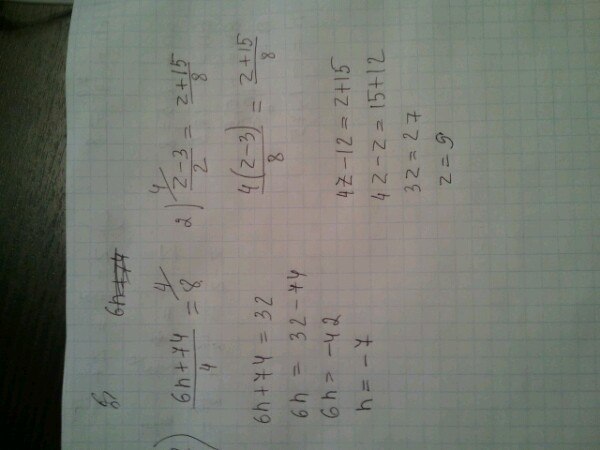 б) 6h+74
(6h+74)/4 = 8 4/
6h+74 = 32
6h = 32-74
6h = -42
h = -7
2) 4/ (z-3)/2 = (z+15)/8
4(z-3)/8 = (z+15)/8
4z-12 = z+15
4z-z = 15+12
3z = 27
z = 9